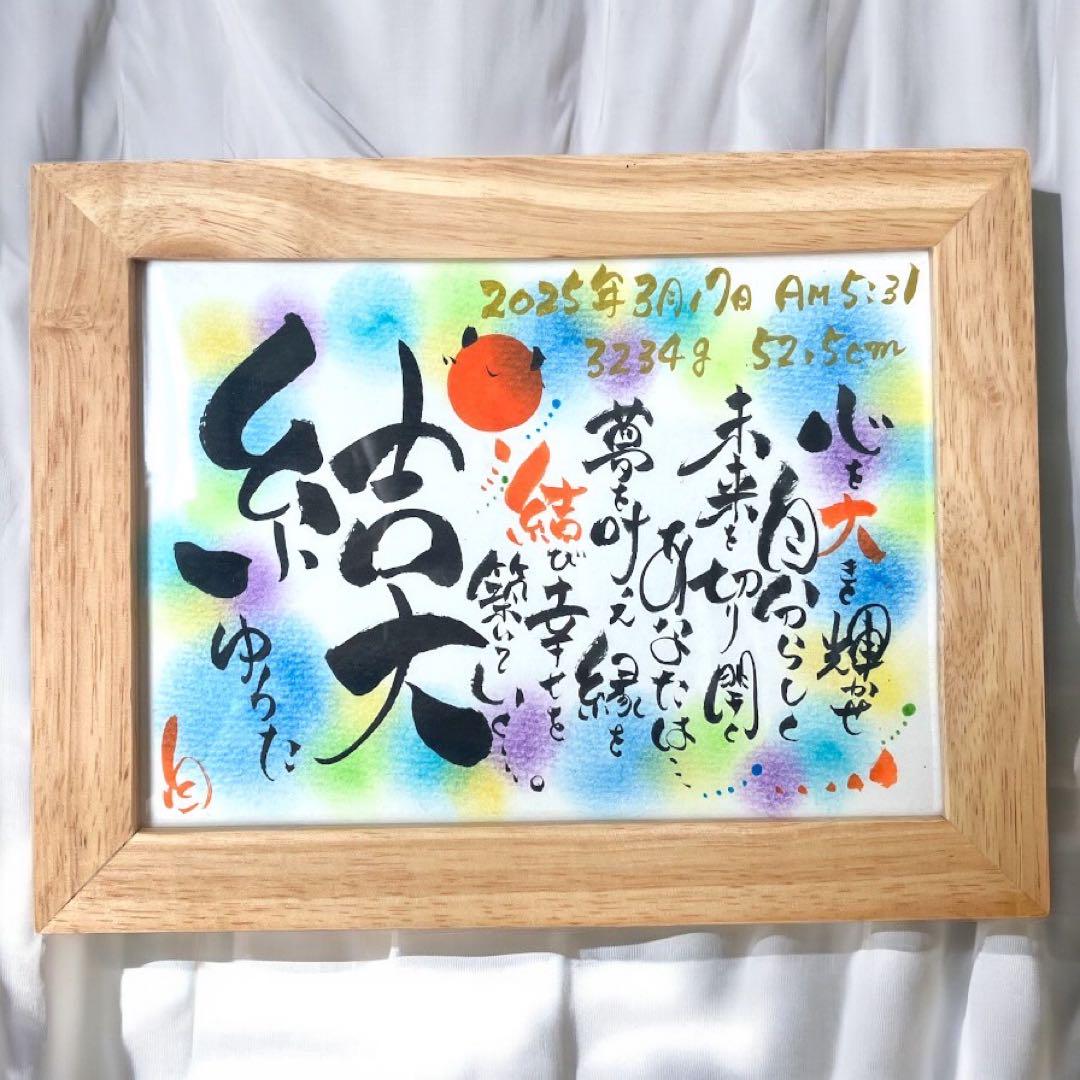 2025年3月17日 AM5:31
3234g 52.5cm
心を大きく輝かせ
自分らしく
未来を切り開く
あなたは…
夢を叶え縁を
結び幸せを
築いてしく…。
結大
ゆうた